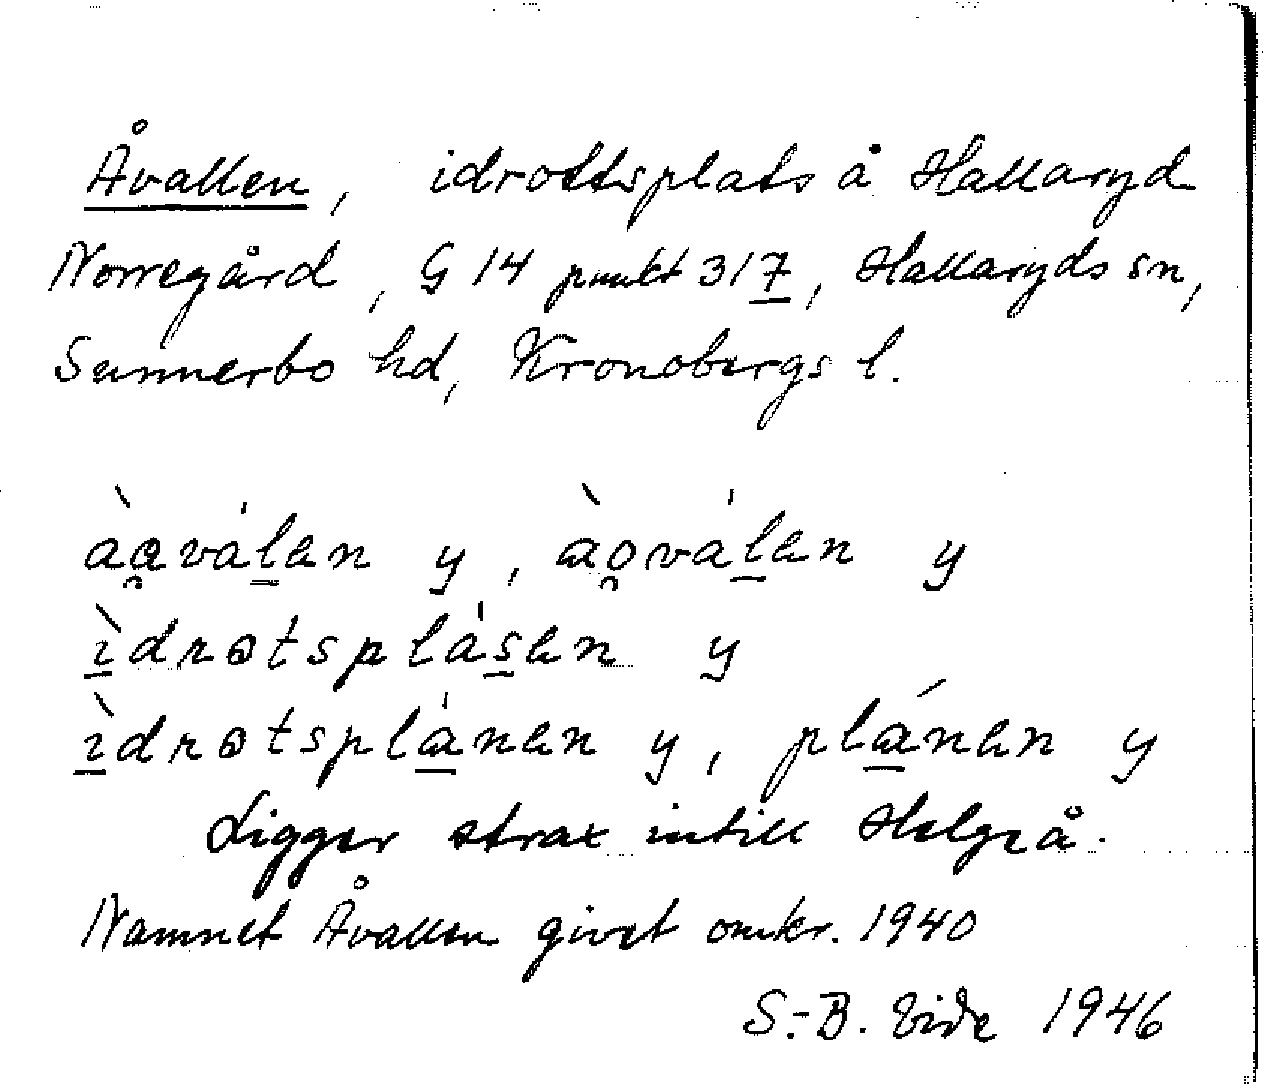 Åvallen, idrottsplats å Hallaryd
Norregård, G 14 punkt 317, Hallaryds sn,
Sunnerbo hd, Kronobergs l.
àa̯vàlen y, ào̯vàlen y
ìdrɵtsplàsen y
ìdrɵtsplànen y, plánen y
Ligger strax intill Helgeå.
Namnet Åvallen givet omkr. 1940
S.-B. Vide 1946